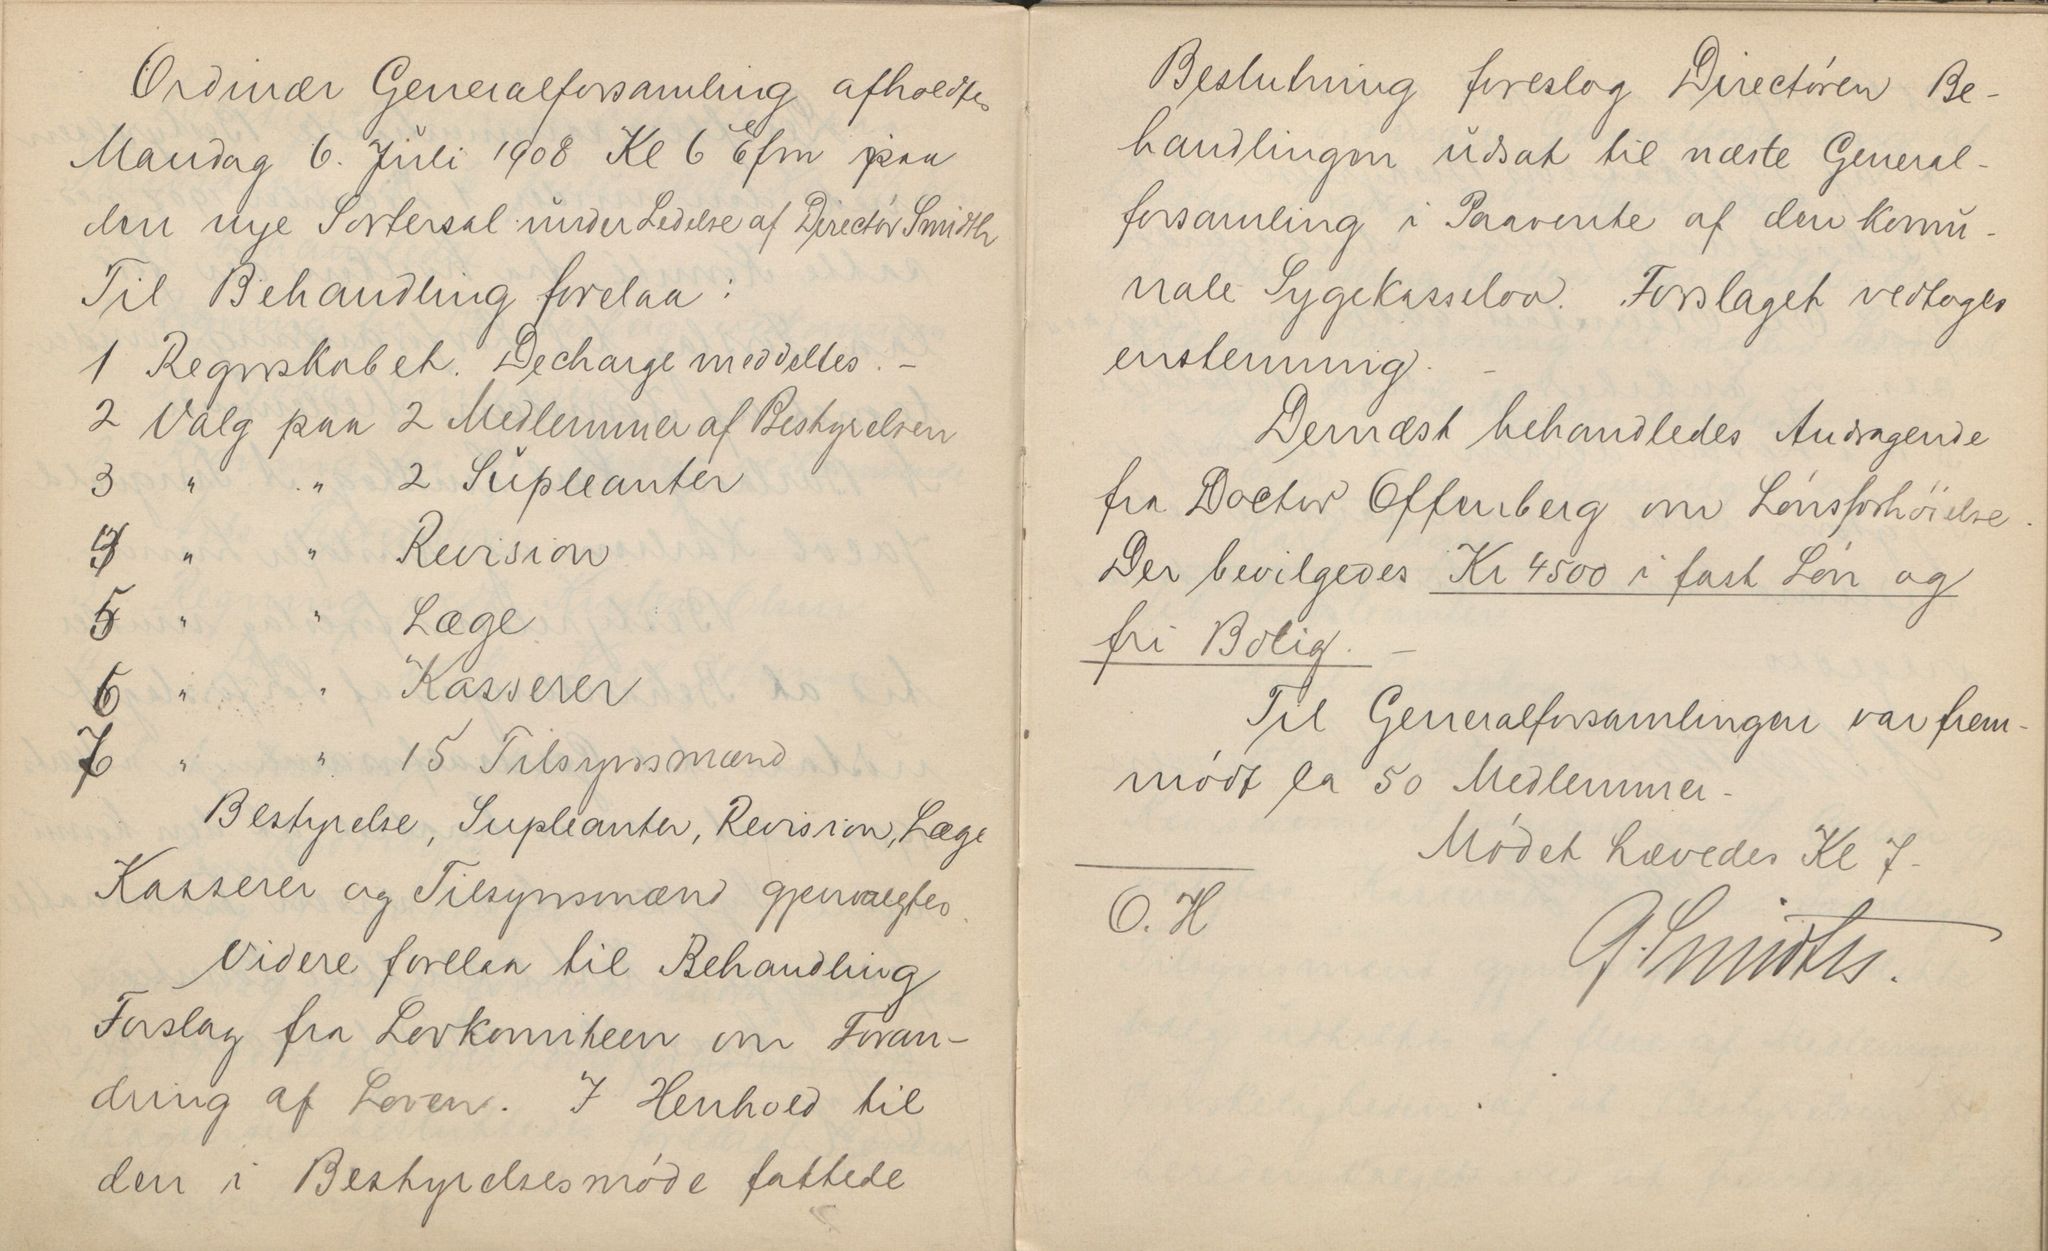 Ordinær Generalforsamling afholdtes
Mandag 6. Juli 1908 Kl 6 Efm paa
den nye Sortersal under Ledelse af Directør Smidth
Til Behandling forelaa:
1 Regnskabet. Decharge meddeltes. -
2 Valg paa 2 Medlemmer af Bestyrelsen
3 " " 2 Supleanter
4 " " Revision
5 " " Læge
6 " " Kasserer
7 " " 15 Tilsynsmænd
Bestyrelse, Supleanter, Revision, Læge
Kasserer og Tilsynsmænd gjenvalgtes.
Videre forelaa til Behandling
Forslag fra Lovkomiteen om Foran-
dring af Loven. I Henhold til
den i Bestyrelsesmøde fattede
Beslutning foreslog Directøren Be-
handlingen udsat til næste General-
forsamling i Paavente af den komu-
nale Sygekasselov. Forslaget vedtoges
enstemmig. -
Dernæst behandledes Andragende
fra Doctor Offenberg om Lønsforhöielse.
Der bevilgedes Kr 4500 i fast Løn og
fri Bolig. -
Til Generalforsamlingen var frem-
mødt ca 50 Medlemmer -
Mødet hævedes Kl 7 -
O. H
G. Smidth.